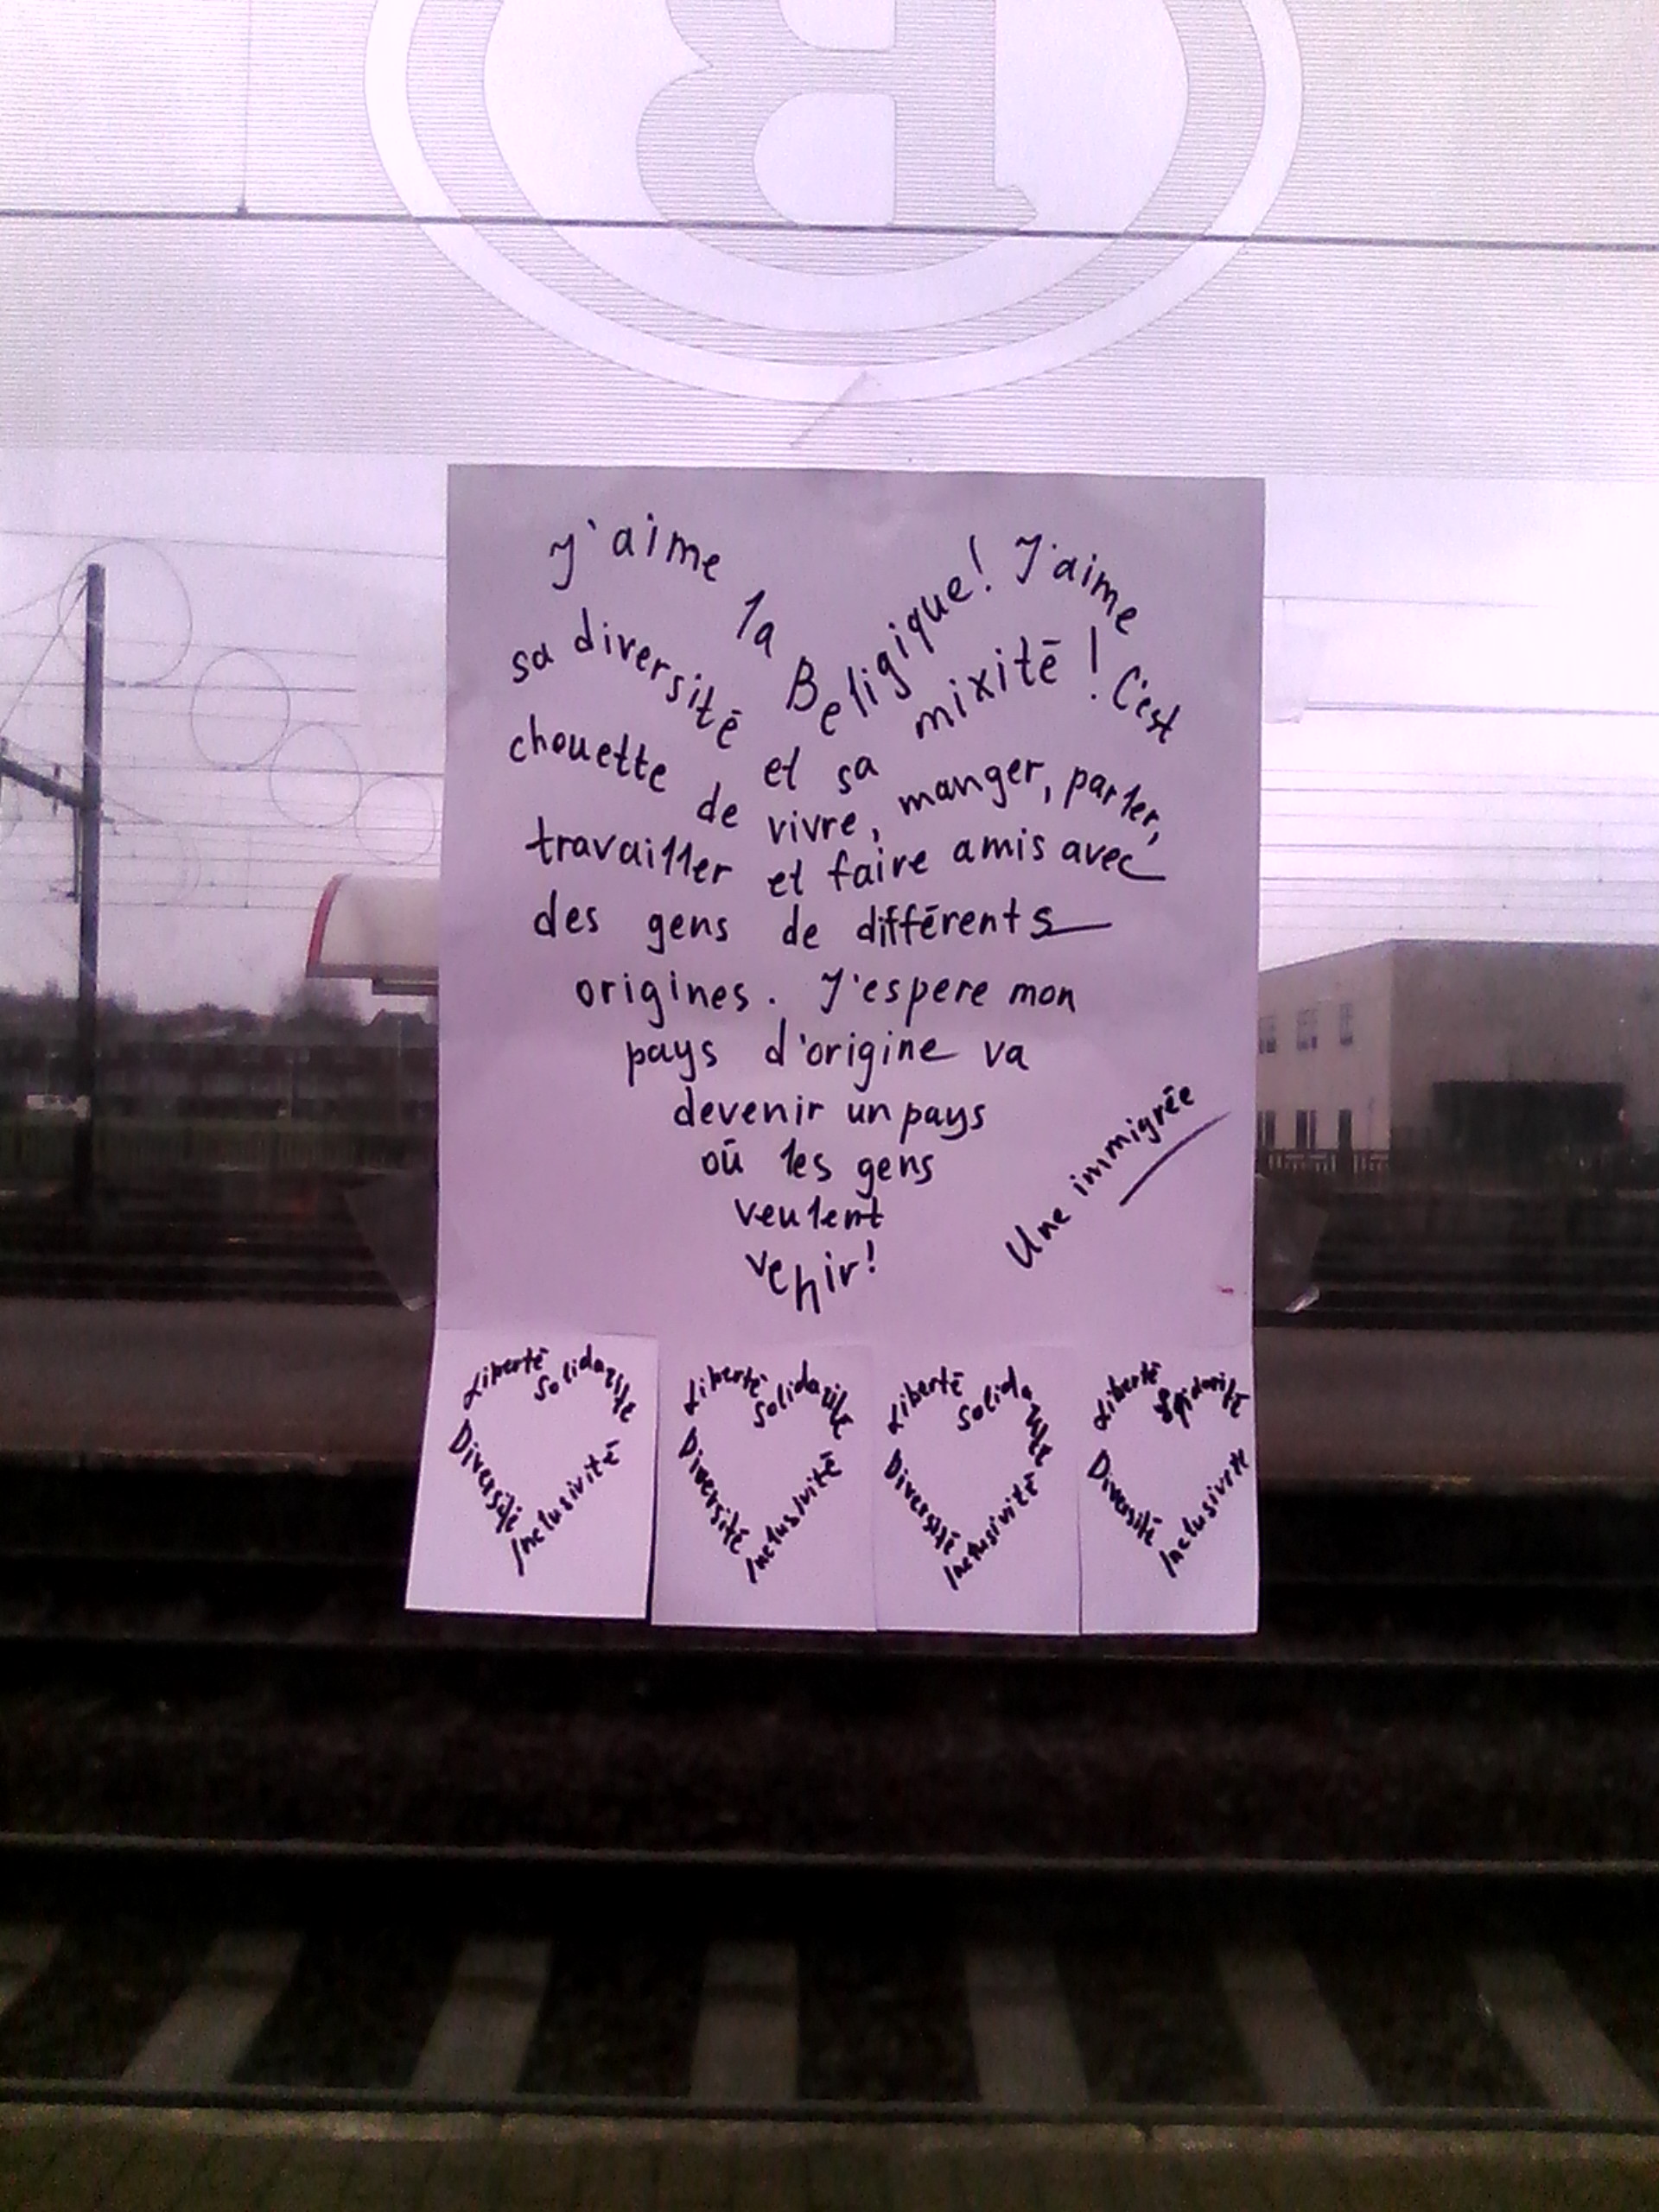 B
J'aime la Beligique! J'aime
sa diversité et sa mixité! C'est
chouette de vivre, manger, parler,
travailler et faire amis avec
des gens de différents
origines. J'espere mon
pays d'origine va
devenir un pays
où les gens
veulent
venir!
Une immigrée
Liberté Solidarité
Diversité Inclusivité
Liberté Solidarité
Diversité Inclusivité
Liberté Solidarité
Diversité Inclusivité
Liberté Solidarité
Diversité Inclusivité